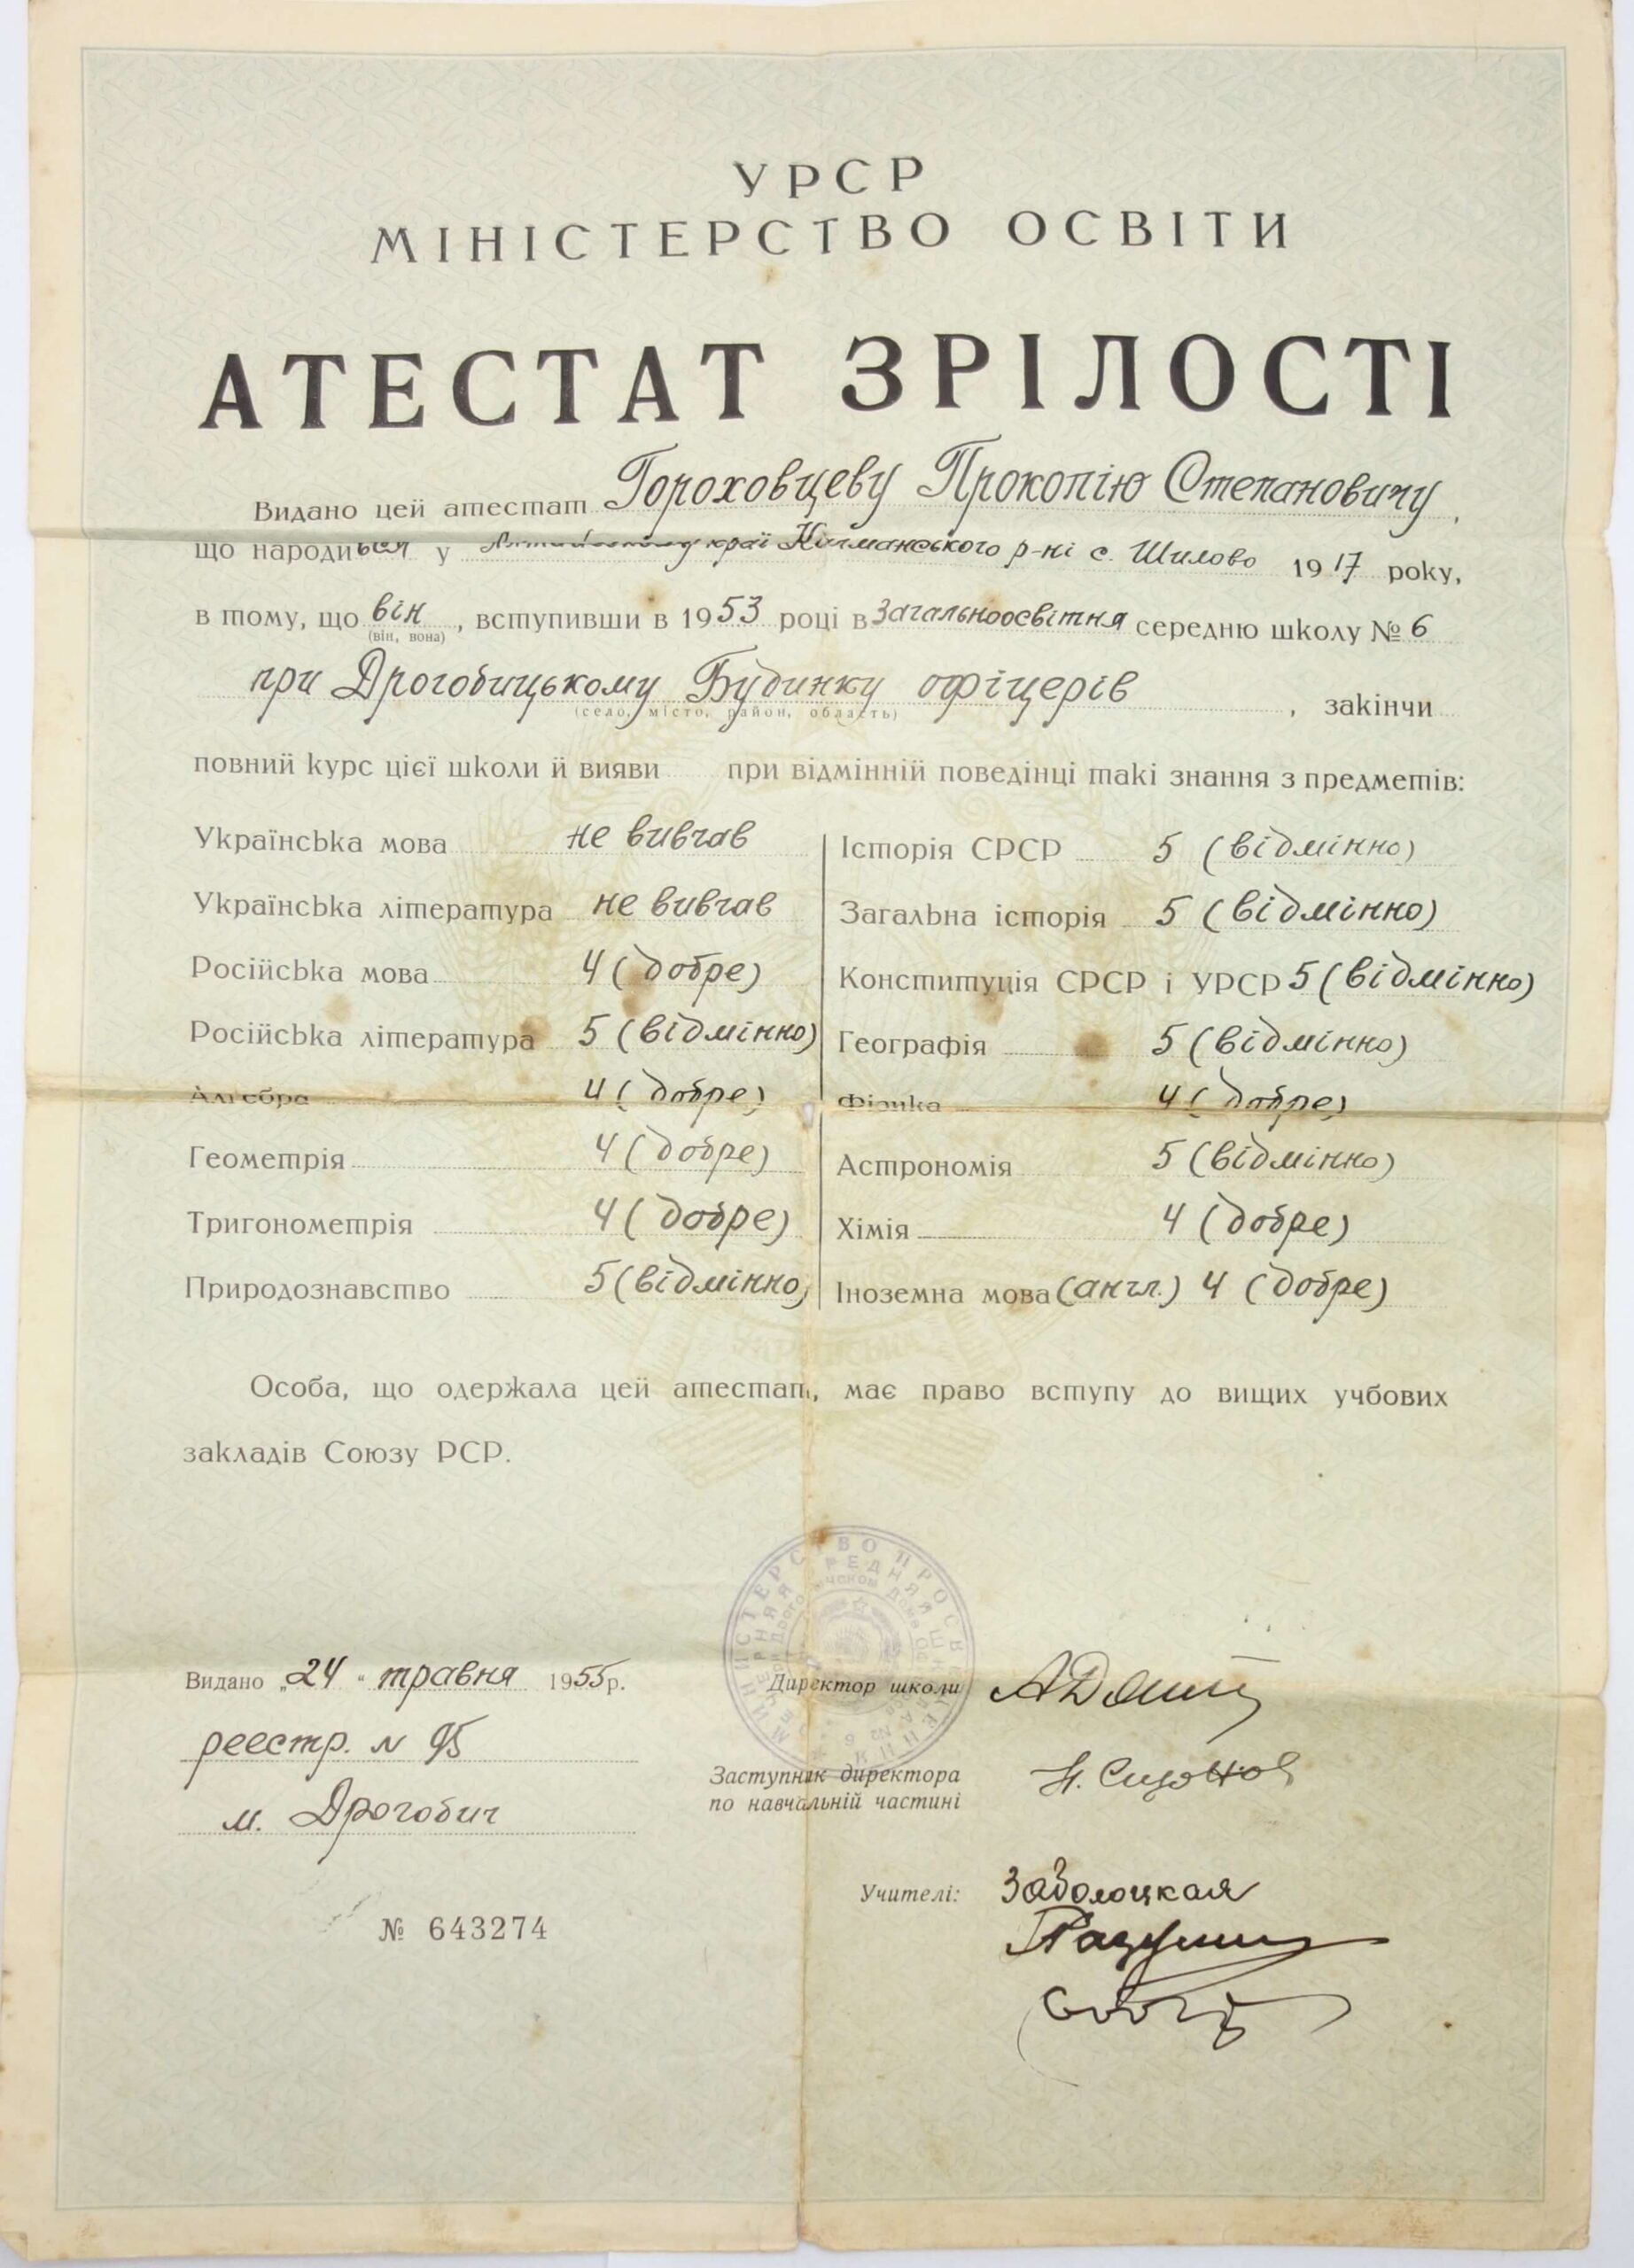 УРСР
МІНІСТЕРСТВО ОСВІТИ
АТЕСТАТ ЗРІЛОСТІ
Видано цей атестат Гороховцеву Прокопію Степановичу,
що народився у Алтайському краї Китмановського р-ні с. Шилово 1917 року,
в тому, що він, вступивши в 1953 році в Загальноосвітня середню школу № 6
(він, вона)
при Дрогобицькому Будинку офіцерів, закінчи
(село, місто, район, область)
повний курс цієї школи й вияви при відмінній поведінці такі знання з предметів:
Українська мова не вивчав
Українська література не вивчав
Російська мова 4 (добре)
Російська література 5 (відмінно)
Алгебра 4 (добре)
Геометрія 4 (добре)
Тригонометрія 4 (добре)
Природознавство 5 (відмінно)
Історія СРСР 5 (відмінно)
Загальна історія 5 (відмінно)
Конституція СРСР і УРСР 5 (відмінно)
Географія 5 (відмінно)
Фізика 4 (добре)
Астрономія 5 (відмінно)
Хімія 4 (добре)
Іноземна мова (англ.) 4 (добре)
Особа, що одержала цей атестат, має право вступу до вищих учбових
закладів Союзу РСР.
Видано „24" травня 1955 р.
реестр. N 95
м. Дрогобич
№ 643274
МИНИСТЕРСТВО ПРОСВЕЩЕНИЯ
Директор школи
Заступник директора
по навчальній частині
Учителі: Заболоцкая